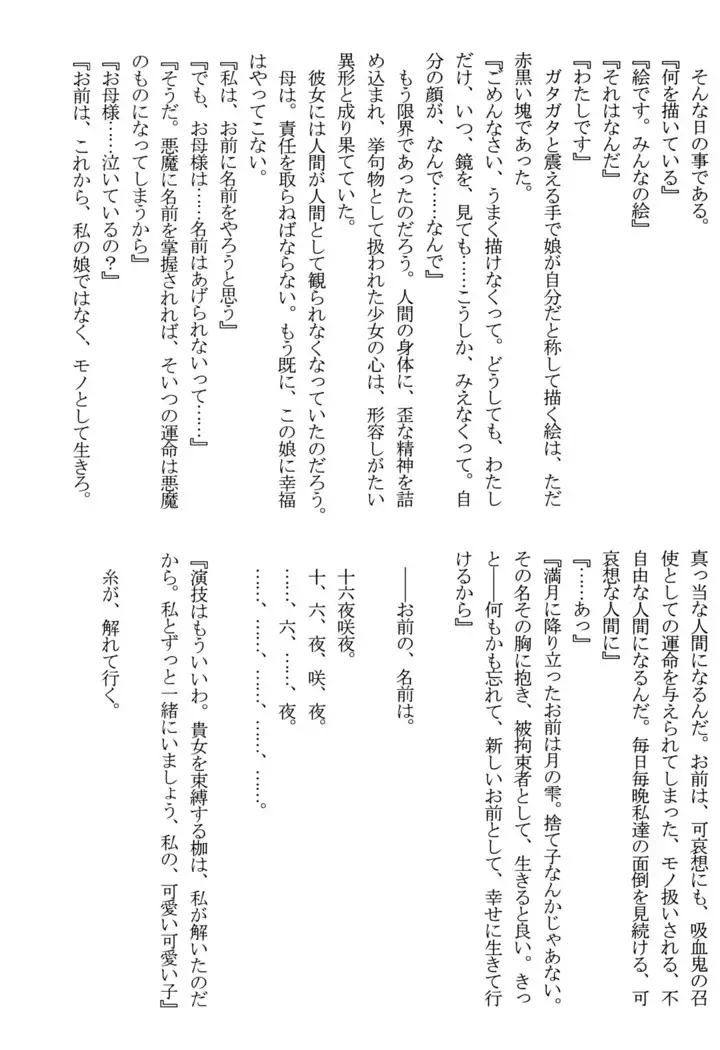 そんな日の事である。
『何を描いている』
『絵です。みんなの絵』
『それはなんだ』
『わたしです』
ガタガタと震える手で娘が自分だと称して描く絵は、ただ
赤黒い塊であった。
『ごめんなさい、うまく描けなくって。どうしても、わたし
だけ、いつ、鏡を、見ても……こうしか、みえなくって。自
分の顔が、なんで……なんで』
もう限界であったのだろう。人間の身体に、歪な精神を詰
め込まれ、挙句物として扱われた少女の心は、形容しがたい
異形と成り果てていた。
彼女には人間が人間として観られなくなっていたのだろう。
母は。責任を取らねばならない。もう既に、この娘に幸福
はやってこない。
『私は、お前に名前をやろうと思う』
『でも、お母様は……名前はあげられないって……』
『そうだ。悪魔に名前を掌握されれば、そいつの運命は悪魔
のものになってしまうから』
『お母様……泣いているの？』
『お前は、これから、私の娘ではなく、モノとして生きろ。
真っ当な人間になるんだ。お前は、可哀想にも、吸血鬼の召
使としての運命を与えられてしまった、モノ扱いされる、不
自由な人間になるんだ。毎日毎晩私達の面倒を見続ける、可
哀想な人間に』
『……あっ』
『満月に降り立ったお前は月の雫。捨て子なんかじゃあない。
その名その胸に抱き、被拘束者として、生きると良い。きっ
と――何もかも忘れて、新しいお前として、幸せに生きて行
けるから』
――お前の、名前は。
十六夜咲夜。
十、六、夜、咲、夜。
……、六、……、夜。
……、……、……、……。
『演技はもういいわ。貴女を束縛する枷は、私が解いたのだ
から。私とずっと一緒にいましょう、私の、可愛い可愛い子』
糸が、解れて行く。